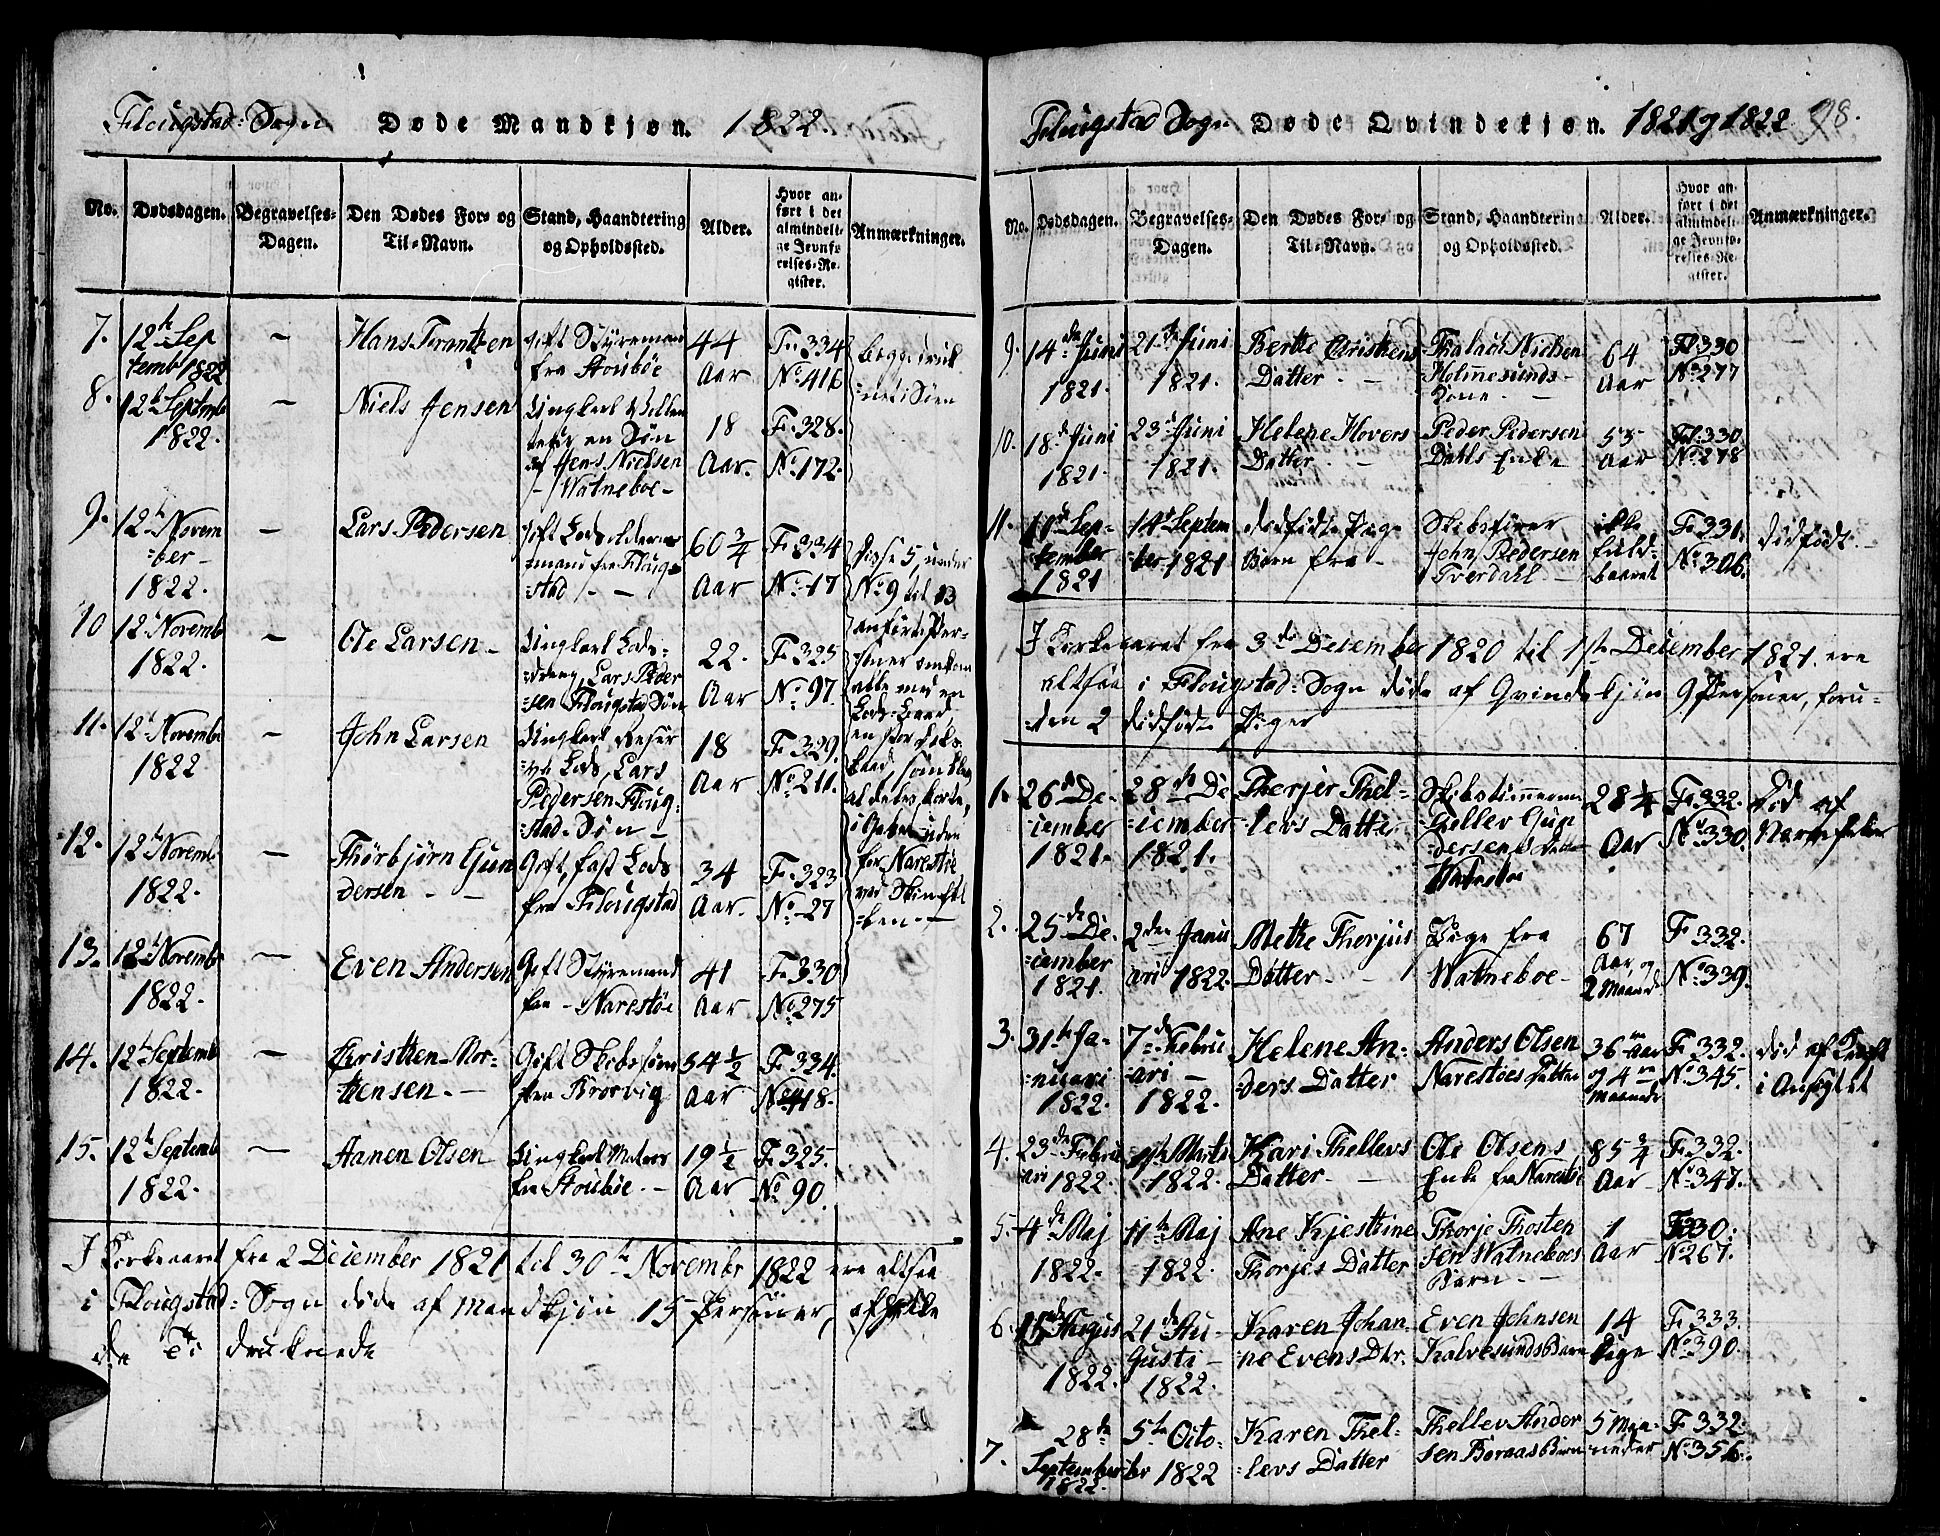 Flougstad-Sogn Døde Mandkjøn. 1822
No. Dødsdagen. Begravelses-Dagen. Den Dødes For- og Til-Navn. Stand, Haandtering og Opholdssted. Alder. Hvor anført i det almindelige Jevnførelses-Register. Anmærkninger.
7. 12te September 1822 – Hans Frantzen gift Styrmand fra Stoubøe 44 Aar Fn: 334 No. 416
8. 12te Septembr 1822. – Niels Jensen Ungkarl en Søn af Jens Nielsen Watneboe 18 Aar. F: 328. No. 172.
9. 12te November 1822. – Lars Pedersen gift Lods fra Flougstad 60 3/4 Aar F: 334 No. 17 disse 5, under No. 9 til 13 anførte Personer omkom alle med en
10 12te Novembr 1822. – Ole Larsen Ungkarl Lodsdreng, Lars Pedersen Flougstad Søn 22. Aar F: 325 No. 97.
11. 12te Novembr 1822 – John Larsen Ungkarl Lods, Lars Pedersen Flougstad Søn 18 Aar F: 329. No. 211.
12. 12te Novembr 1822. – Thorbjørn Gundersen Gift, fast Lods fra Flougstad 34 Aar. F: 323 No. 27 for Narestøe
13. 12te Novembr 1822. – Even Andersen Gift Styremand fra Narestøe 41 Aar F: 330 No. 275
14. 12te Septembr 1822. – Christen Mortensen. Gift fra Broevig 54 1/2 Aar F: 334. No. 418.
15. 12te Septembr 1822. – Aanen Olsen Ungkarl Matros fra Stoubøe. 19 1/2 Aar F: 325. No. 90.
I Kirkeaaret fra 2 December 1821 til 30te Novembr 1822 ere altsaa
i Flougstad-Sogn døde af Mandkjøn 15 Personer,
druknede
Flougstad Sogn Døde Qvindekjøn. 1821 og 1822 98.
No. Dødsdagen. Begravelses-Dagen. Den Dødes For- og Til-Navn. Stand, Haandtering og Opholdssted. Alder. Hvor anført i det almindelige Jevnførelses-Register. Anmærkninger.
9. 14de Juni 1821. 21de Juni 1821. Berthe Christens Datter Nielsen Holmesunds Kone 64 Aar Fol: 330 No. 277
10. 18de Juni 1821. 23de Juni 1821. Helene Hovers Datter Peder Pedersen Dahls Enke 55 Aar Fol: 330 No. 278
11. 11de September 1821 14de September 1821 dødfødte Pige Barn fra Skibsfører John Pedersen Tverdahl ikke fuldbaaret F: 331. No. 306. dødfødt.
I Kirkeaaret fra 3de December 1820 til 1ste December 1821. ere
altsaa i Flougstad-Sogn døde af Qvindekjøn 9 Personer, foruden 2 dødfødte Piger
1. 26de December 1821. 28de December 1821. Therjer Thellevs Datter Skibstømmermand Thellev Gundersens Datter Watneboe 28 1/4 Aar F: 332. No. 330. Død af Nervefeber
2. 25de December 1821. 2den Januari 1822. Mette Thorjus Datter Pige fra Watneboe 67 Aar og 2 Maaneder F: 332. No. 339.
3. 31te Januari 1822. 7de Februari 1822. Helene Anders Datter Anders Olsen Narestøes Datter 36 Aar og 4 Maaneder F: 332. No. 345. død af Kræft i Ansigtet
4. 23de Februari 1822. 1ste Marts 1822. Kari Thellevs Datter Ole Olsens Enke fra Narestøe 85 3/4 Aar F: 332. No. 347.
5. 4de Maj 1822. 11te Maj 1822. Ane Kjestine Thorjes Datter Thorje Thostensen Watneboes Barn 1 Aar F: 330: No. 267.
6. 15de August 1822. 21de Augusti 1822. Karen Johanne Evens Dtr. Even Johnsen Kalvesunds Barn 14 Dage F: 333. No. 390.
7. 28de September 1822. 5te October 1822 Karen Thellevs Datter Thellev Andersen Boraas Barn 5 Maaneder F: 332. No. 356.